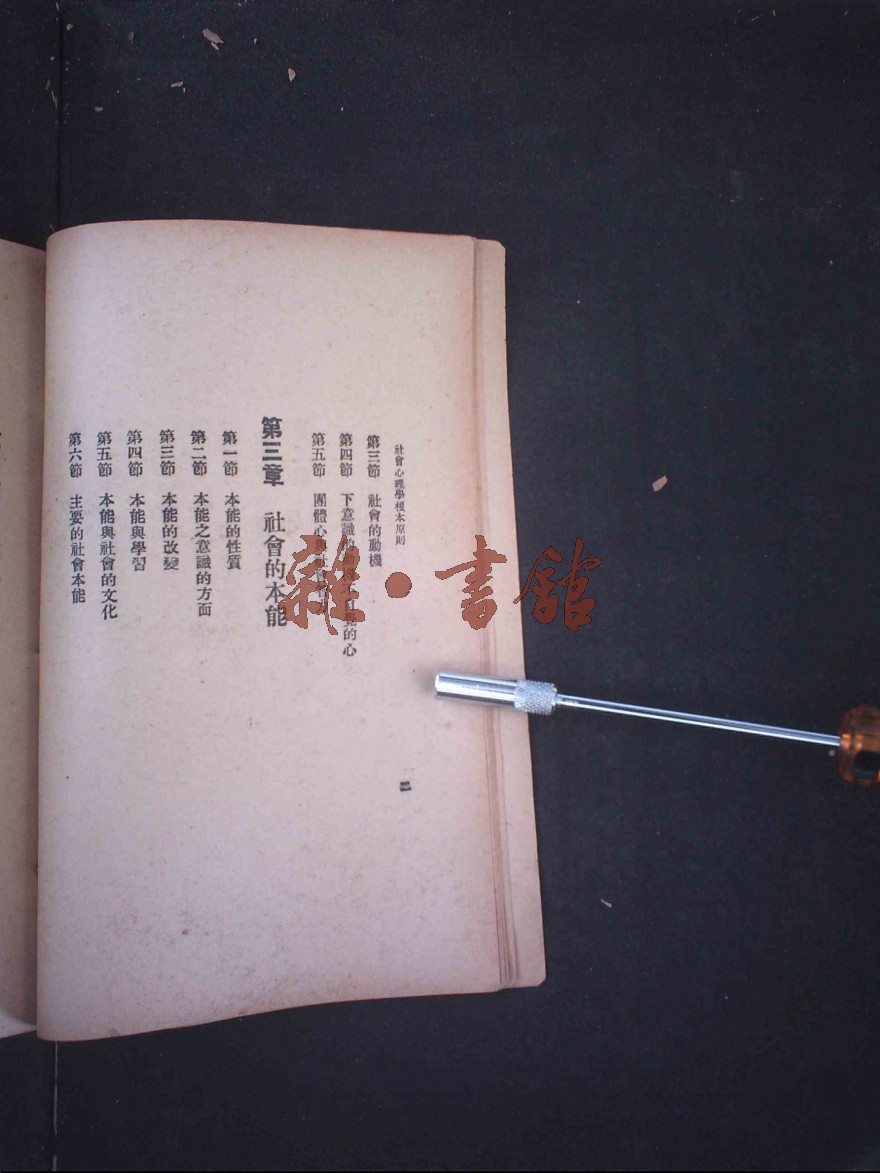 社會心理學根本原則
第三節 社會的動機
第四節 下意識的 的心
第五節 團體心
第三章 社會的本能
第一節 本能的性質
第二節 本能之意識的方面
第三節 本能的改變
第四節 本能與學習
第五節 本能與社會的文化
第六節 主要的社會本能
二
雜·書館